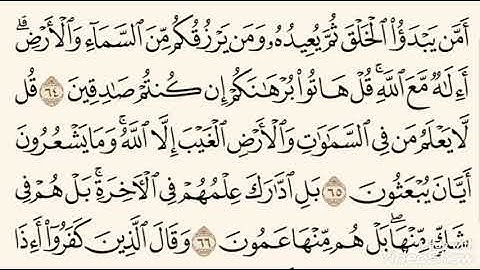 أَمَّن يَبْدَؤُا۟ ٱلْخَلْقَ ثُمَّ يُعِيدُهُۥ وَمَن يَرْزُقُكُم مِّنَ ٱلسَّمَآءِ وَٱلْأَرْضِ ۗ
أَءِلَٰهٌ مَّعَ ٱللَّهِ ۚ قُلْ هَاتُوا۟ بُرْهَٰنَكُمْ إِن كُنتُمْ صَٰدِقِينَ ٦٤ قُل
لَّا يَعْلَمُ مَن فِى ٱلسَّمَٰوَٰتِ وَٱلْأَرْضِ ٱلْغَيْبَ إِلَّا ٱللَّهُ ۚ وَمَا يَشْعُرُونَ
أَيَّانَ يُبْعَثُونَ ٦٥ بَلِ ٱدَّٰرَكَ عِلْمُهُمْ فِى ٱلْأَخِرَةِ ۚ بَلْ هُمْ فِى
شَكٍّ مِّنْهَا ۖ بَلْ هُم مِّنْهَا عَمُونَ ٦٦ وَقَالَ ٱلَّذِينَ كَفَرُوٓا۟ أَءِذَا